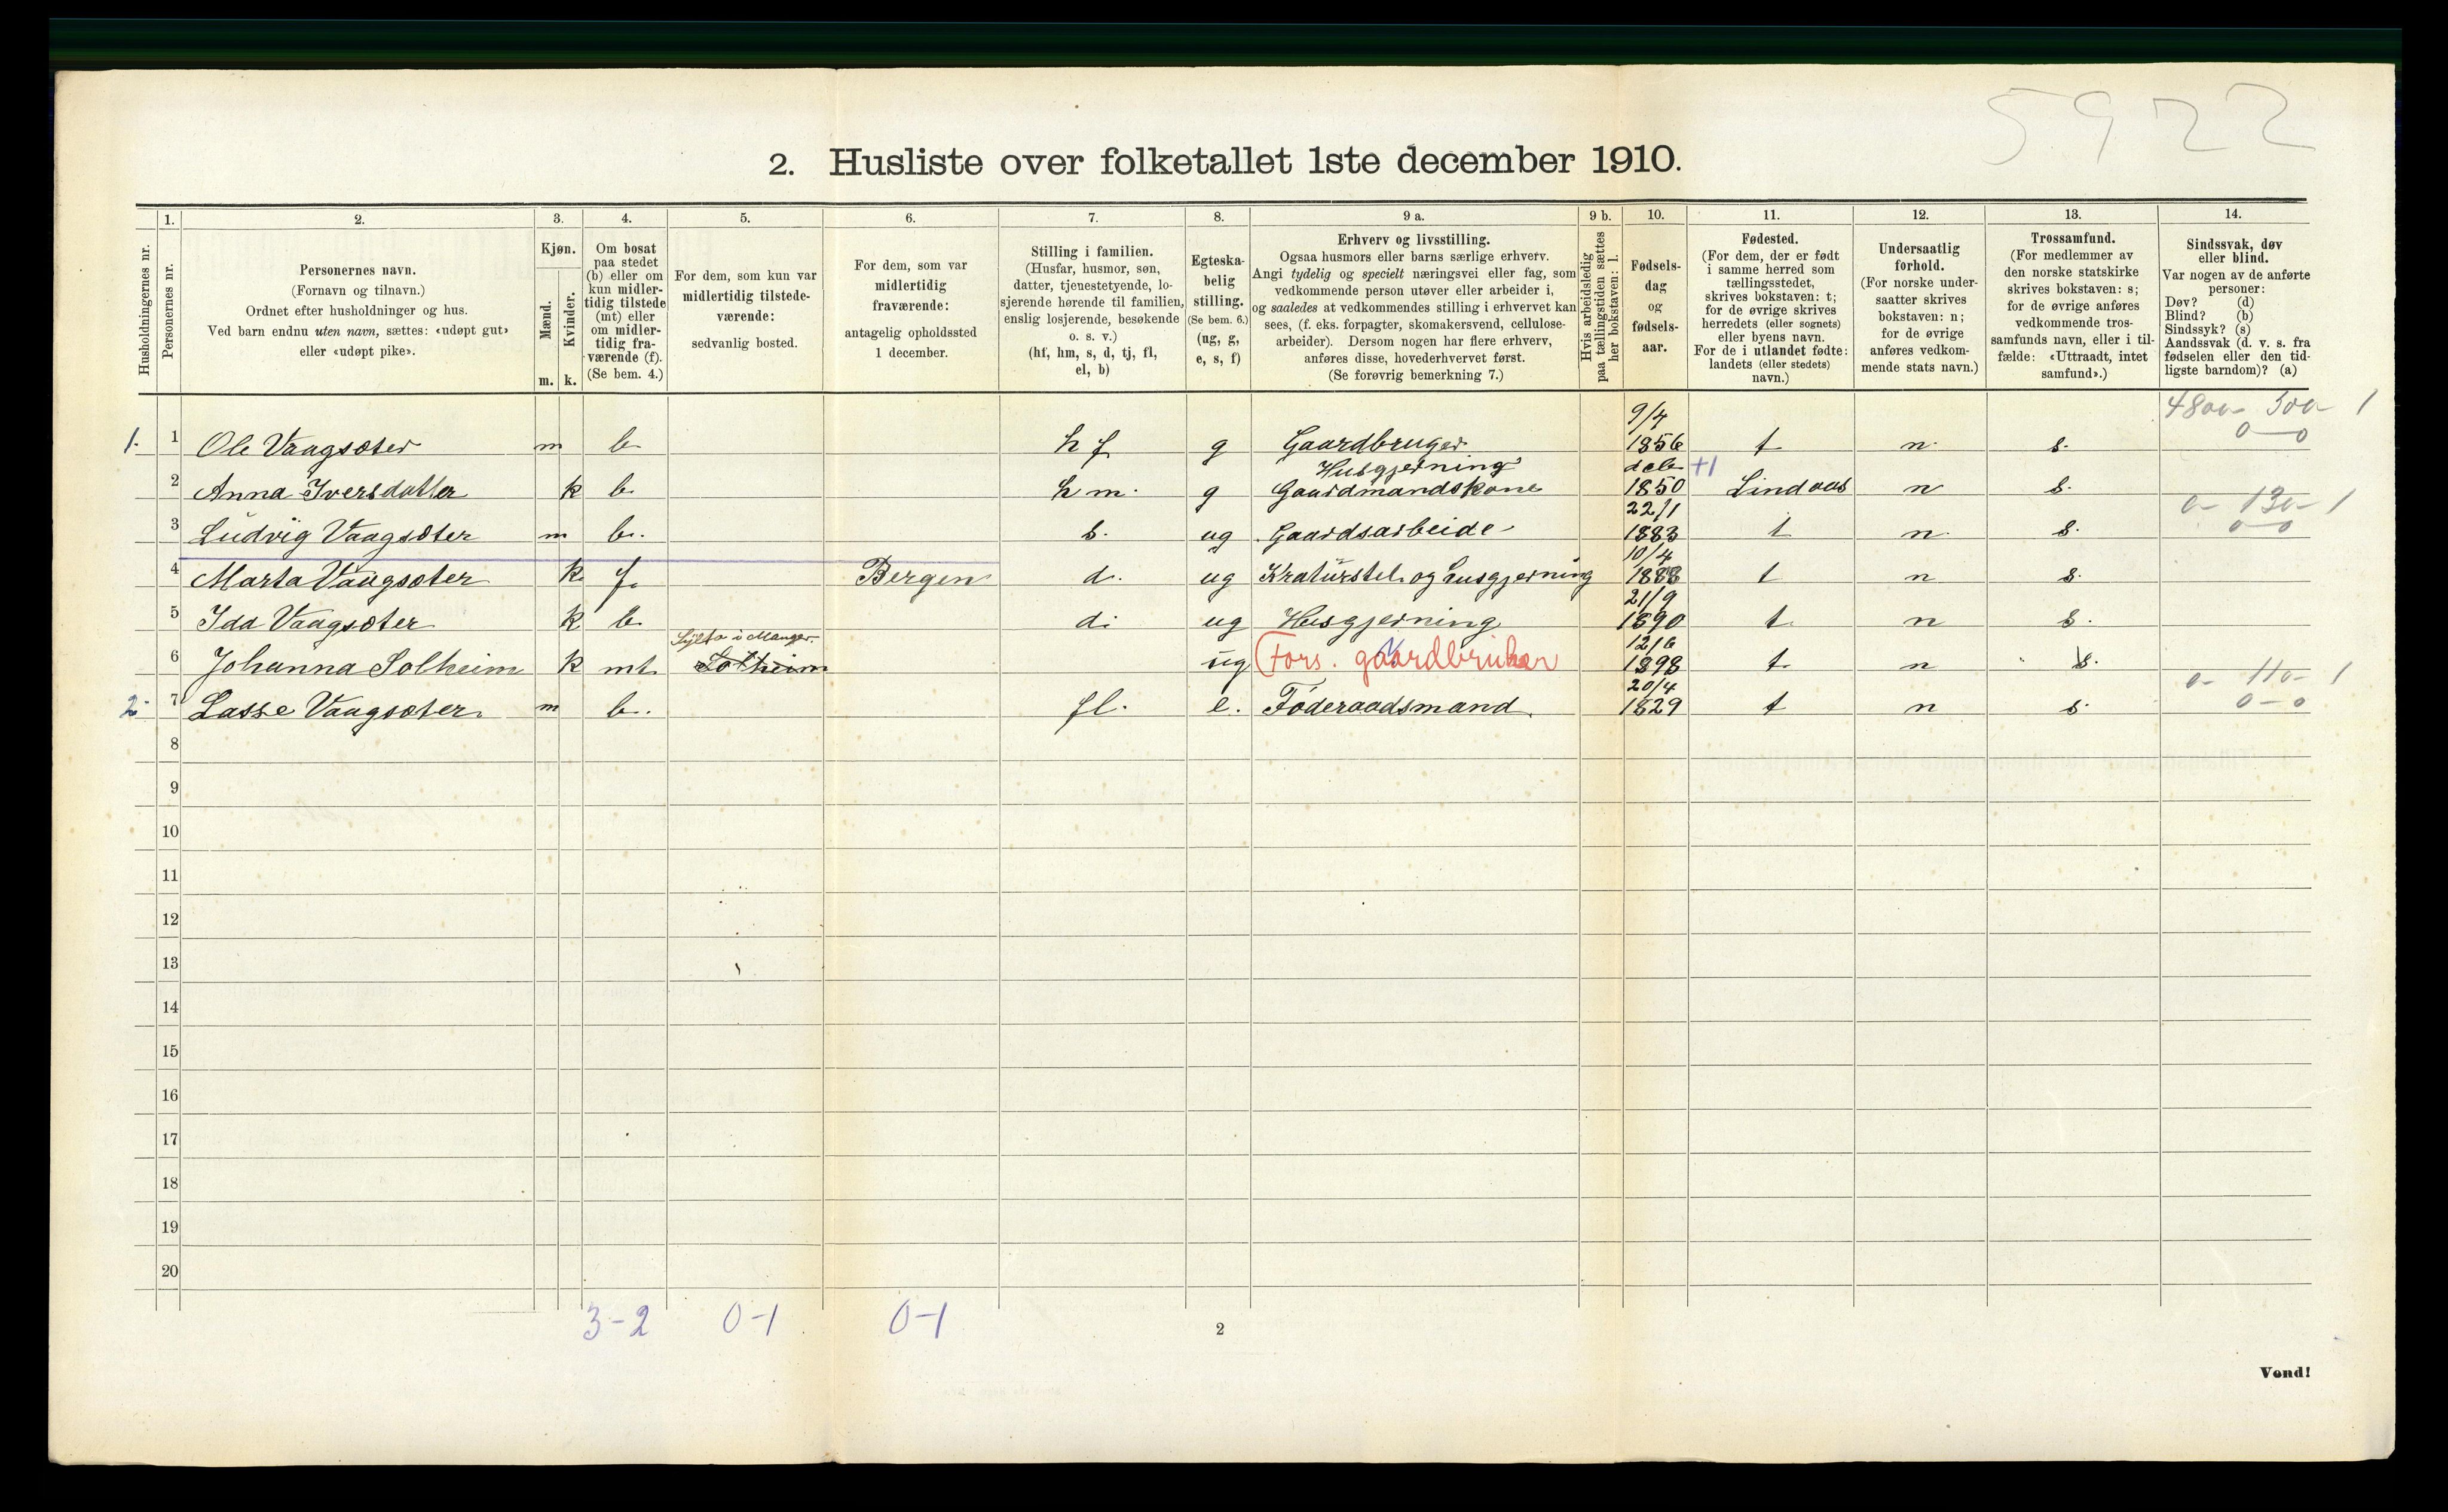 5922
2. Husliste over folketallet 1ste december 1910.
Husholdningernes nr.
1. Personernes nr.
2. Personernes navn.
(Fornavn og tilnavn.)
Ordnet efter husholdninger og hus.
Ved barn endnu uten navn, sættes: «udøpt gut»
eller «udøpt pike».
3. Kjøn.
Mænd. Kvinder.
m. k.
4. Om bosat
paa stedet
(b) eller om
kun midler-
tidig tilstede
(mt) eller
om midler-
tidig fra-
værende (f).
(Se bem. 4.)
5. For dem, som kun var
midlertidig tilstede-
værende:
sedvanlig bosted.
6. For dem, som var
midlertidig
fraværende:
antagelig opholdssted
1 december.
7. Stilling i familien.
(Husfar, husmor, søn,
datter, tjenestetyende, lo-
sjerende hørende til familien,
enslig losjerende, besøkende
o. s. v.)
(hf, hm, s, d, tj, fl,
el, b)
8. Egteska-
belig
stilling.
(Se bem. 6.)
(ug, g,
e, s, f)
9 a. Erhverv og livsstilling.
Ogsaa husmors eller barns særlige erhverv.
Angi tydelig og specielt næringsvei eller fag, som
vedkommende person utøver eller arbeider i,
og saaledes at vedkommendes stilling i erhvervet kan
sees, (f. eks. forpagter, skomakersvend, cellulose-
arbeider). Dersom nogen har flere erhverv,
anføres disse, hovederhvervet først.
(Se forøvrig bemerkning 7.)
9 b. Hvis arbeidsledig
paa tællingstiden sættes
her bokstaven: l.
10. Fødsels-
dag
og
fødsels-
aar.
11. Fødested.
(For dem, der er født
i samme herred som
tællingsstedet,
skrives bokstaven: t;
for de øvrige skrives
herredets (eller sognets)
eller byens navn.
For de i utlandet fødte:
landets (eller stedets)
navn.)
12. Undersaatlig
forhold.
(For norske under-
saatter skrives
bokstaven: n;
for de øvrige
anføres vedkom-
mende stats navn.)
13. Trossamfund.
(For medlemmer av
den norske statskirke
skrives bokstaven: s;
for de øvrige anføres
vedkommende tros-
samfunds navn, eller i til-
fælde: «Uttraadt, intet
samfund».)
14. Sindssvak, døv
eller blind.
Var nogen av de anførte
personer:
Døv? (d)
Blind? (b)
Sindssyk? (s)
Aandssvak (d. v. s. fra
fødselen eller den tid-
ligste barndom)? (a)
9/4 4800- 300- 1
1. 1 Ole Vaagsæter m b hf g Gaardbruger 1856 t n. s. 0-0
Husgjerning
2 Anna Iversdatter k b hm. g Gaardmandskone 1850 +1 Lindaas n s.
22/1 0- 130- 1
3 Ludvig Vaagsæter m b. s. ug Gaardsarbeide 1883 t n. s. 0-0
10/4
4 Marta Vaagsæter k f. Bergen d. ug Kraturstel og husgjerning 1888 t n s.
21/9
5 Ida Vaagsæter k b d. ug Husgjerning 1890 t. n s.
Sylta i Manger. 12/6
6 Johanna Solheim k mt. Solheim ug (Fors. gaardbruker 1898 t. n s.
20/4 0- 110- 1
2. 7 Lasse Vaagsæter. m b. fl. e. Føderaadsmand. 1829 t n s. 0-0
8
9
10
11
12
13
14
15
16
17
18
19
20
3-2 0-1 0-1
2
Vend!